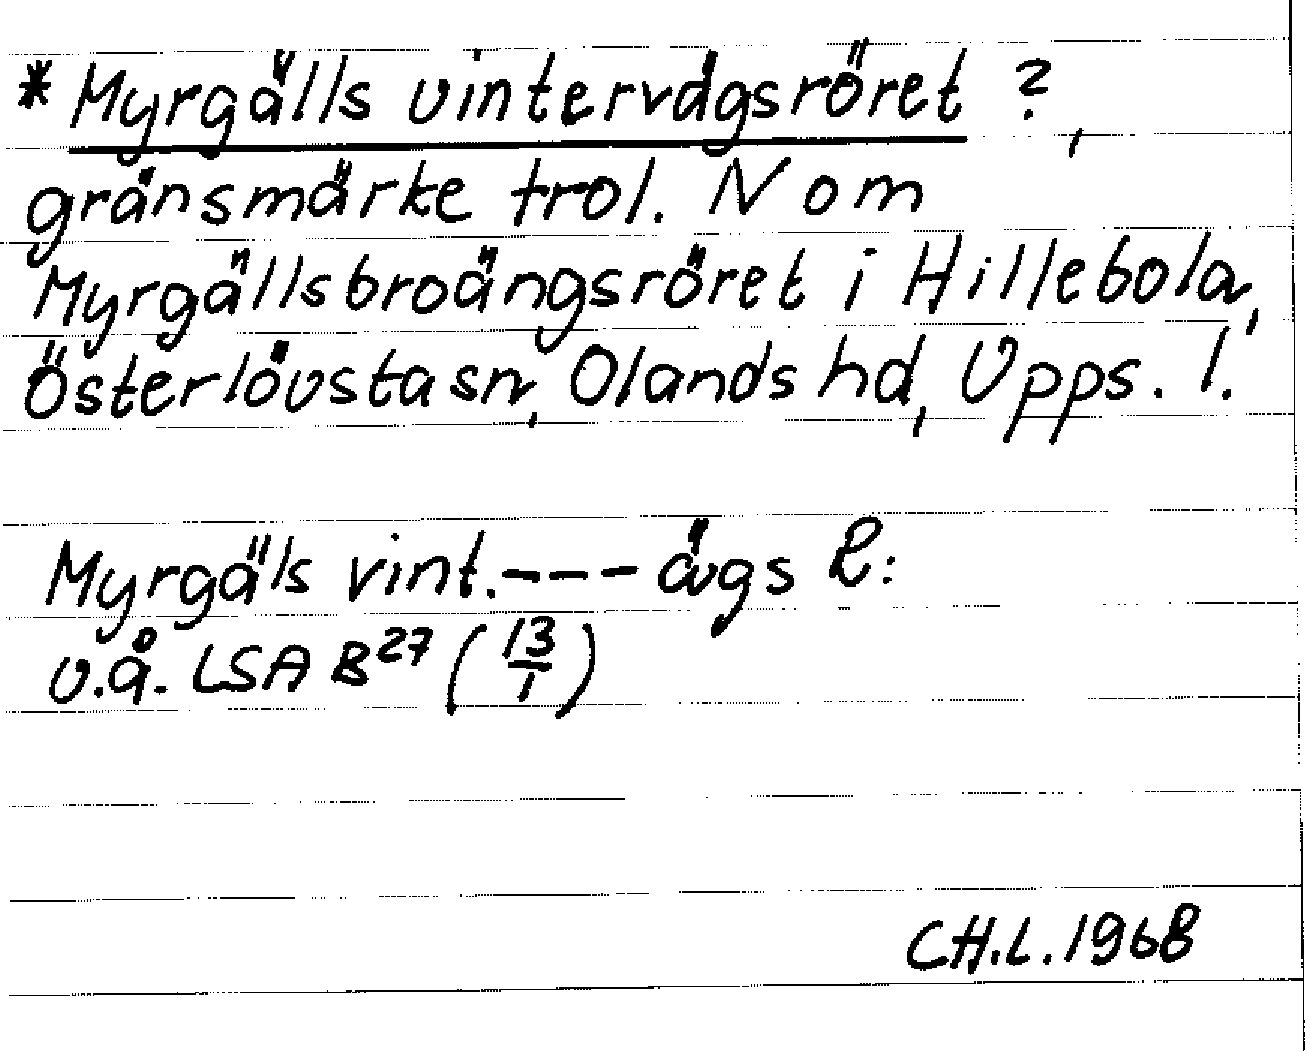 * Myrgälls vintervägsröret ?,
gränsmärke trol. N om
Myrgällsbroängsröret i Hillebola,
Österlövsta sn, Olands hd, Upps. l.
Myrgäls vint.---ävgs R:
u.å. LSA B27 (13/1)
CH.L. 1968